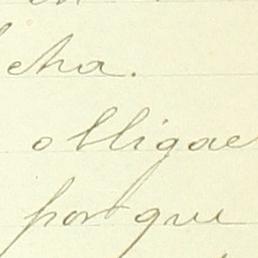 cha.
obligae
porque